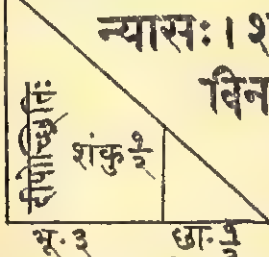 न्यासः । श
विन
दीपोच्छ्रितिः
शंकु १/२
भू. ३ छा. १/२